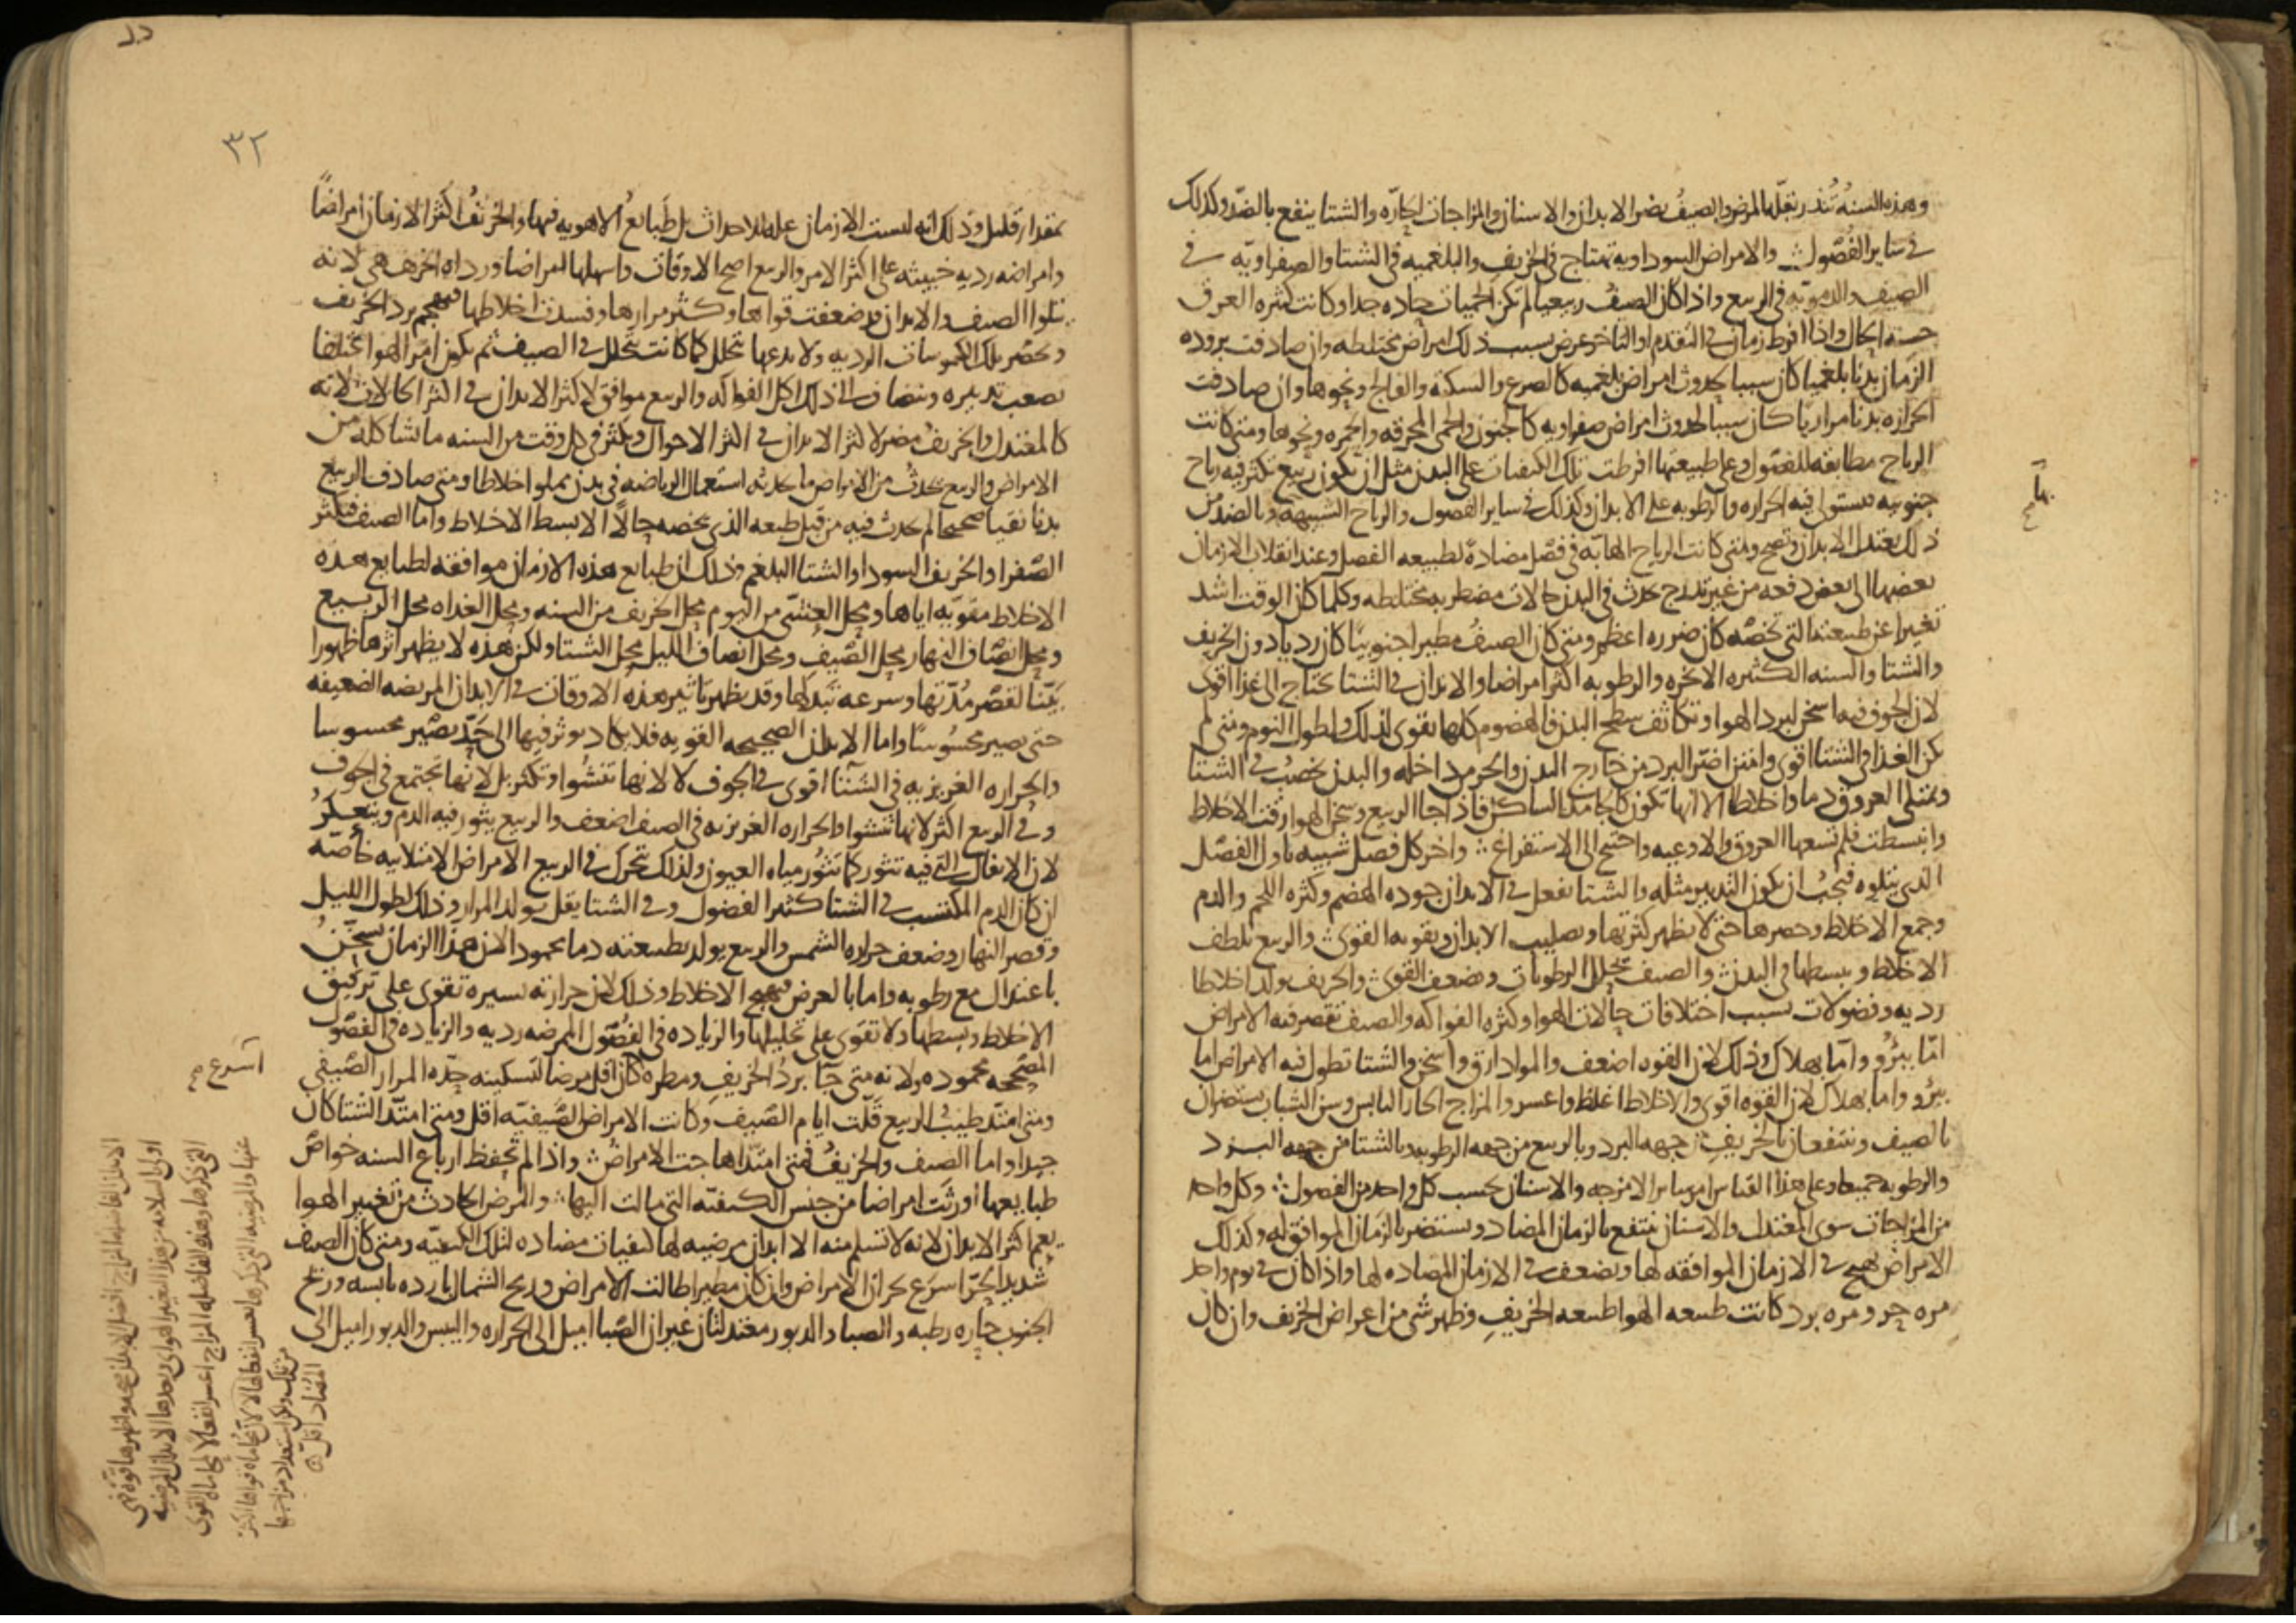 وهذه السنة تنذر بقلة المرض والصيف يضر الابدان والاسنان والمزاجات الحارة والشتا ينفع بالضد وكذلك
في ساير الفصول والامراض السوداويه تهتاج في الخريف والبلغميه في الشتا والصفراويه في
الصيف والدمويه في الربيع واذا كان الصيف ربيعيا لم تكن الحميات حاده جدا وكانت كثيره العرق
حسنه الحال واذا افرط زمان في التقدم او التاخر عرض بسبب ذلك امراض مختلطه وان صادفت بروده
الزمان بدنا بلغميا كان سببا لحدوث امراض بلغميه كالصرع والسكته والفالج ونحوها وان صادفت
الحراره بدنا مراريا كان سببا لحدوث امراض صفراويه كالجنون والحمى المحرقه والحمره ونحوها ومتى كانت
الرياح مطابقه للفصول وعلى طبيعتها افرطت تلك الكيفيات على البدن مثل ان يكون ربيع تكثر فيه رياح
جنوبيه فستولى فيه الحراره والرطوبه على الابدان وكذلك في ساير الفصول والرياح الشبيهه وبالضد من
ذلك يعتدل الابدان وتصح ومتى كانت الرياح الهابه في فصل مضادة لطبيعه الفصل وعند انقلاب الازمان
بعضها الى بعض دفعه من غير تدرج يحدث في البدن حالات مضطربه مختلطه وكلما كان الوقت اشد
تغيرا عن طبيعته التي تخصه كان ضرره اعظم ومتى كان الصيف مطيرا جنوبيا كان رديا دون الخريف
والشتا والسنه الكثيره الابخره والرطوبه اكثر امراضا والابدان في الشتا تحتاج الى غذا اقوى
لان الجوف فيه اسخن لبرد الهوا وتكاثف سطح البدن فالهضوم كلها تقوى لذلك ولطول النوم ومتى لم
يكن الغذا في الشتا اقوى وامتن اضر البرد من خارج البدن والحر من داخله والبدن يخصب في الشتا
وتمتلى العروق دما واخلاطا الا انها تكون كالجامده الساكن فاذا جا الربيع وسخن الهوا رقت الاخلاط
وانبسطت فلم تسعها العروق والاوعيه واحتيج الى الاستفراغ واخر كل فصل شبيه باول الفصل
الذي يتلوه فيجب ان يكون التدبير مثله والشتا يفعل في الابدان جوده الهضم وكثره اللحم والدم
وجمع الاخلاط وحصرها حتى لا يظهر كثرتها وتصليب الابدان وتقويه القوى والربيع يلطف
الاخلاط ويبسطها في البدن والصيف يحلل الرطوبات ويضعف القوى والخريف يولد اخلاطا
رديه وفضولات بسبب اختلافات حالات الهوا وكثره الفواكه والصيف تقصر فيه الامراض
اما ببرو واما بهلاك وذلك لان القوه اضعف والمواد ارق واسخن والشتا تطول فيه الامراض اما
ببرو واما بهلاك لان القوه اقوى والاخلاط اغلظ واعسر والمزاج الحار اليابس وسن الشباب يستضران
بالصيف وينتفعان بالخريف من جهه البرد وبالربيع من جهه الرطوبه وبالشتا من جهه البرد
والرطوبه جميعا وعلى هذا القياس امر ساير الامزجه والاسنان بحسب كل واحد من الفصول وكل واحد
من المزاجات سوى المعتدل والاسنان ينتفع بالزمان المضاد ويستضر بالزمان الموافق له وكذلك
الامراض تهيج في الازمان الموافقه لها وتضعف في الازمان المضاده لها واذا كان في يوم واحد
مره حر ومره برد كانت طبيعه الهوا طبيعه الخريف وظهر شي من اعراض الخريف وان كان
٣٢
بمقدار قليل وذلك انه ليست الازمان عله للاحداث بل طبايع الاهويه فيها والخريف اكثر الازمان امراضا
وامراضه رديه خبيثه على اكثر الامر والربيع اصح الاوقات واسهلها امراضا ورداه الخريف هي لانه
يتلوا الصيف والابدان قد ضعفت قواها وكثر مرارها وفسدت اخلاطها فيهجم برد الخريف
ويحصر تلك الكيموسات الرديه ولا يدعها تتحلل كما كانت تتحلل في الصيف ثم يكون امر الهوا مختلفا
يصعب تدبيره وينضاف الى ذلك اكل الفواكه والربيع موافق لاكثر الابدان في اكثر الحالات لانه
كالمعتدل والخريف مضر لاكثر الابدان في اكثر الاحوال ويكثر في كل وقت من السنه ما شاكله من
الامراض والربيع يحدث من الامراض ما يحدثه استعمال الرياضه في بدن مملو اخلاطا ومتى صادف الربيع
بدنا نقيا صحيحا لم يحدث فيه من قبل طبعه الذي يخصه حالا الا لبسط الاخلاط واما الصيف فيكثر
الصفرا والخريف السودا والشتا البلغم وذلك ان طبايع هذه الازمان موافقه لطبايع هذه
الاخلاط مقويه اياها ومحل العشى من اليوم محل الخريف من السنه ومحل الغداه محل الربيع
ومحل انصاف النهار محل الصيف ومحل انصاف الليل محل الشتا ولكن هذه لا يظهر اثرها ظهورا
بينا لقصر مدتها وسرعه تبدلها وقد يظهر تاثير هذه الاوقات في الابدان المريضه الضعيفه
حتى يصير محسوسا واما الابدان الصحيحه القويه فلا يكاد يوثر فيها الى حد يصير محسوسا
والحراره الغريزيه في الشتا اقوى في الجوف لا لانها تنشوا وتكثر بل لانها تجتمع في الجوف
وفي الربيع اكثر لانها تنشوا والحراره الغريزيه في الصيف اضعف والربيع يثور فيه الدم ويتعكر
لان الاثفال التي فيه تثور كما تثور مياه العيون ولذلك تتحرك في الربيع الامراض الامتلاييه خاصه
ان كان الدم المكتسب في الشتا كثير الفضول وفي الشتا يقل تولد المرار وذلك لطول الليل
وقصر النهار وضعف حراره الشمس والربيع يولد بطبيعته دما محمودا لان هذا الزمان يسخن
باعتدال مع رطوبه واما بالعرض فيهيج الاخلاط وذلك لان حرارته يسيره تقوى على ترقيق
الاخلاط وبسطها ولا تقوى على تحليلها والزياده في الفصول الممرضه رديه والزياده في الفصول
المصححه محموده ولانه متى جا برد الخريف ومطره كان اقل مرضا لتسكينه حده المرار الصيفي
ومتى امتد طيب الربيع قلت ايام الصيف وكانت الامراض الصيفيه اقل ومتى امتد الشتا كان
جيدا واما الصيف والخريف فمتى امتدا هاجت الامراض واذا لم تحفظ ارباع السنه خواص
طبايعها اورثت امراضا من جنس الكيفيه التي مالت اليها والمرض الحادث من تغير الهوا
يعم اكثر الابدان لانه لا تسلم منه الا ابدان مرضيه لها كيفيات مضاده لتلك الكيفيه ومتى كان الصيف
شديد الحر اسرع بحران الامراض وان كان مطيرا طالت الامراض وريح الشمال بارده يابسه وريح
الجنوب حاره رطبه والصبا والدبور معتدلتان غير ان الصبا اميل الى الحراره واليبس والدبور اميل الى
اسرع